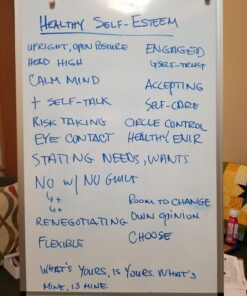 HEALTHY SELF-ESTEEM
UPRIGHT, OPEN POSTURE
HEAD HIGH
CALM MIND
+ SELF-TALK
RISK TAKING
EYE CONTACT
ENGAGED
↳ SELF-TRUST
ACCEPTING
SELF-CARE
CIRCLE CONTROL
HEALTHY ENIR
STATING NEEDS, WANTS
NO W/ NO GUILT
RENEGOTIATING
FLEXIBLE
ROOM TO CHANGE
OWN OPINION
CHOOSE
WHAT'S YOURS, IS YOURS. WHAT'S
MINE, IS MINE.